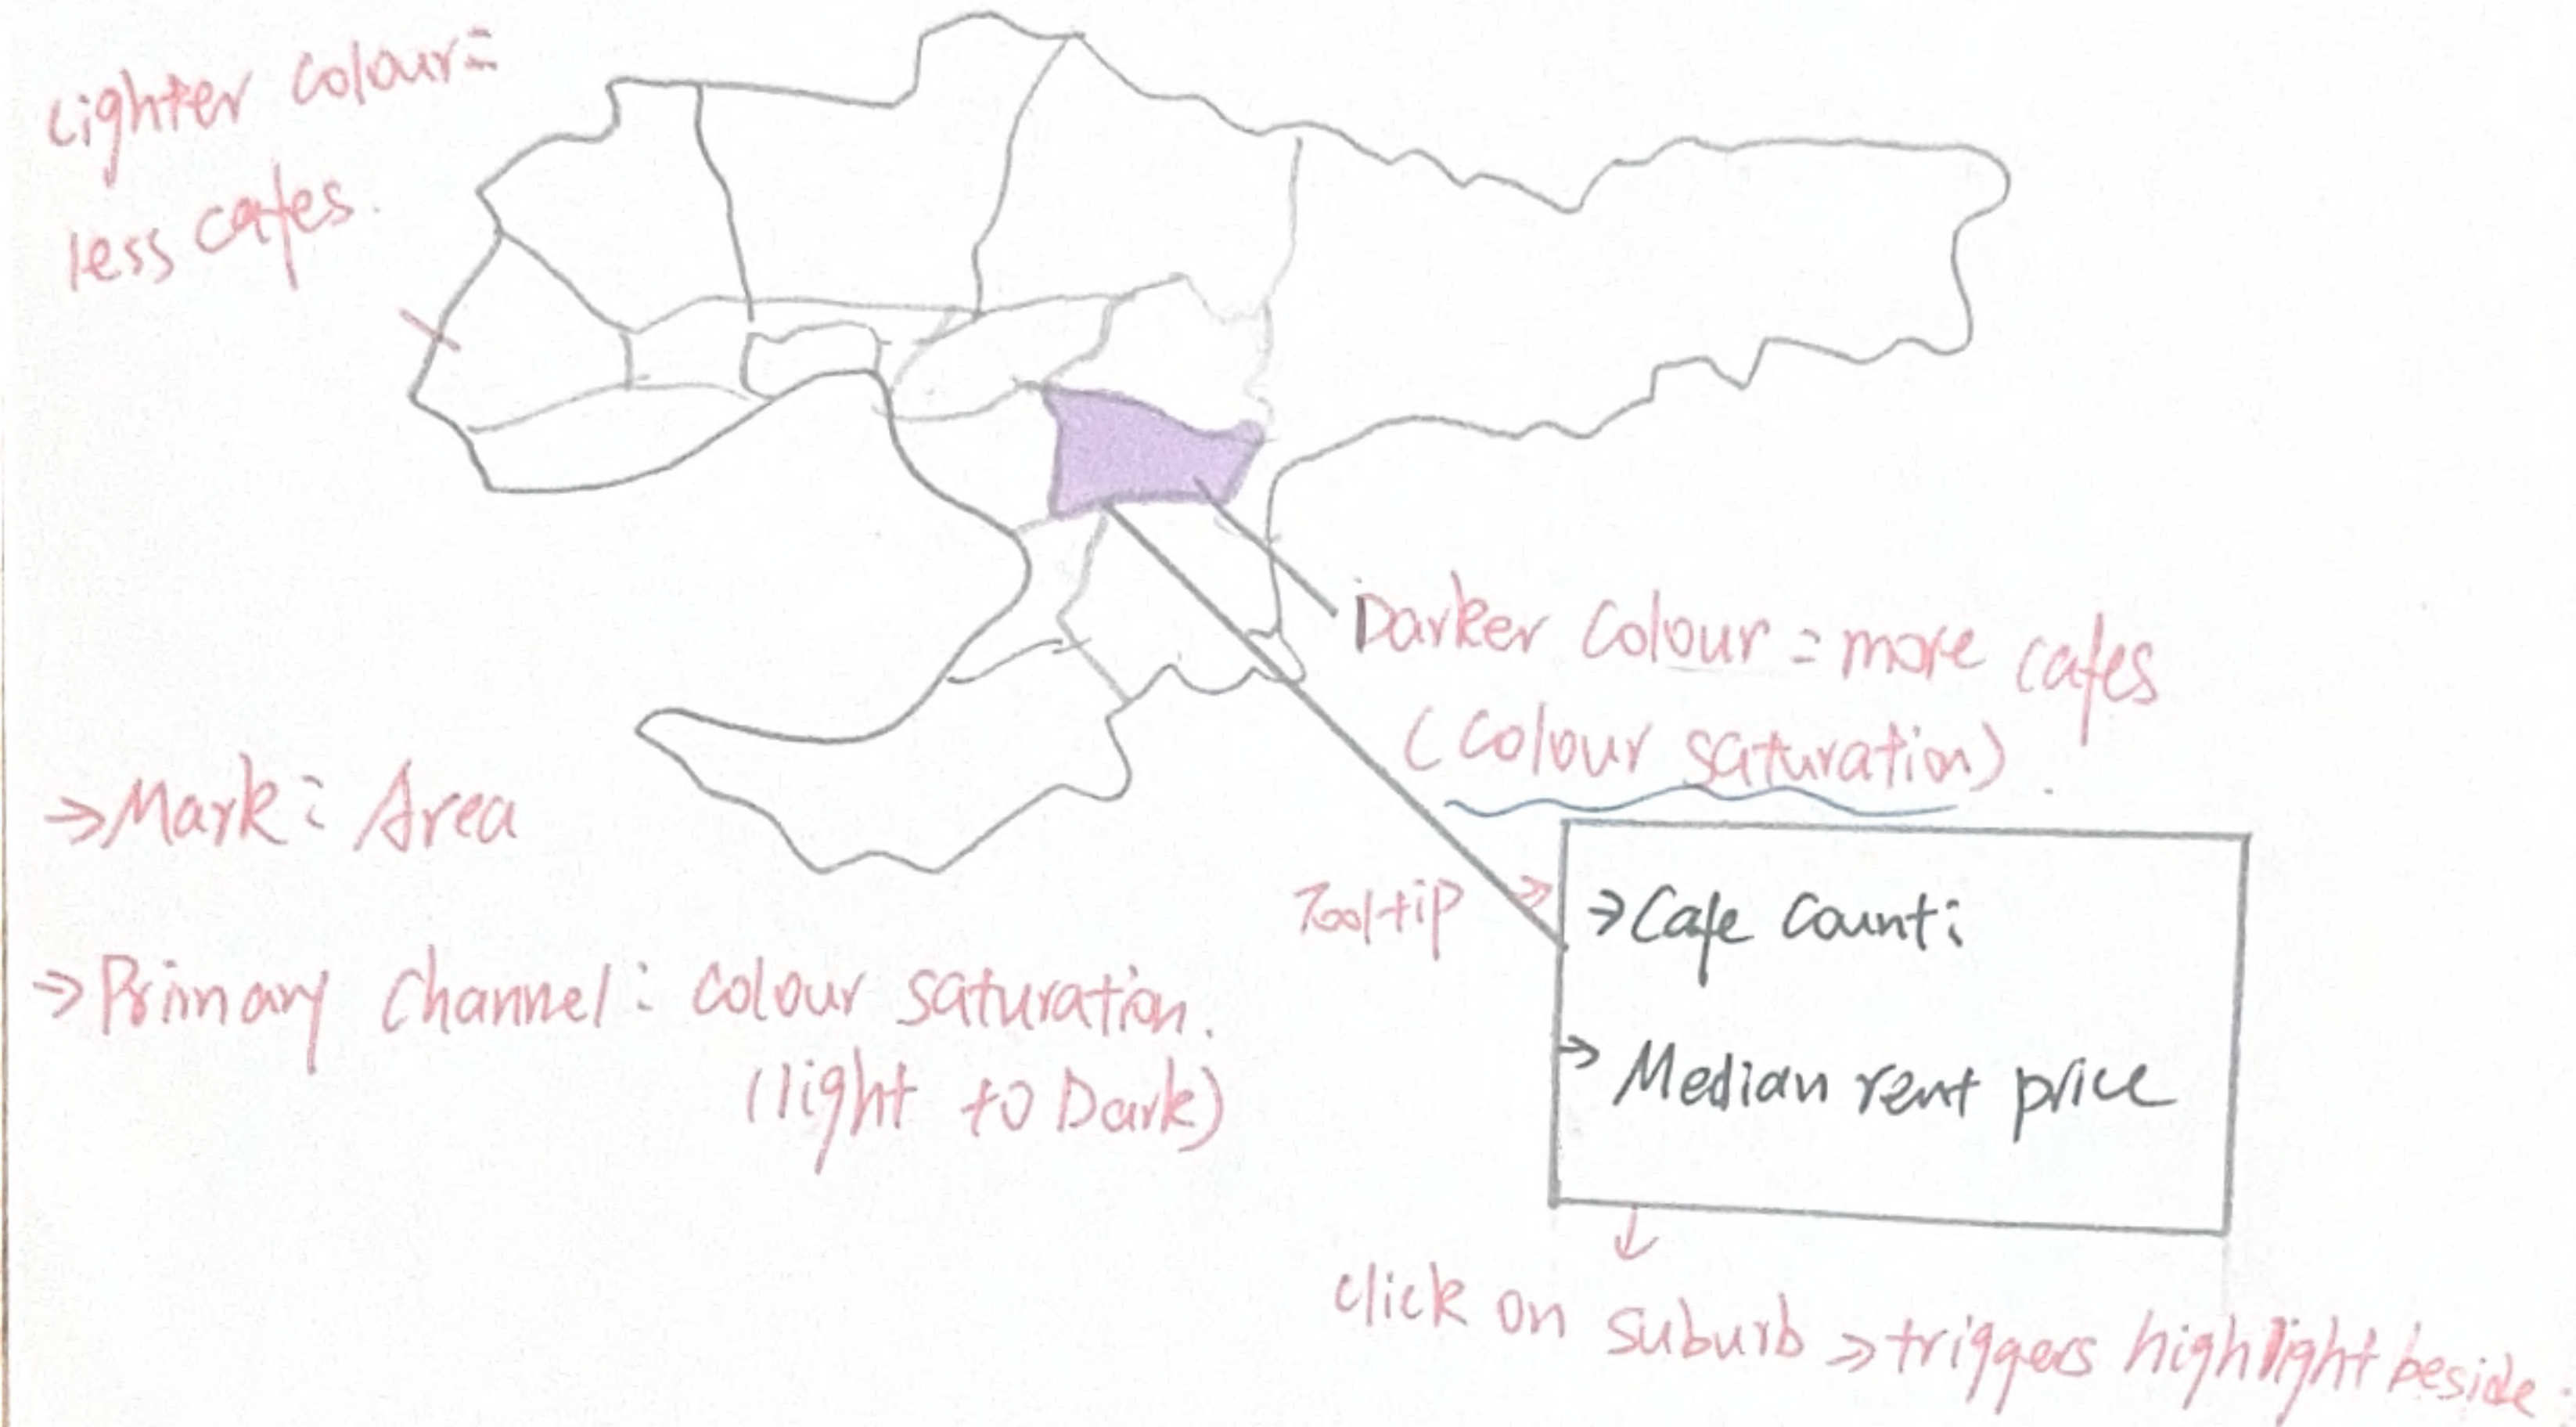 Lighter colour =
less cafes.
Darker colour = more cafes
(colour saturation).
→ Mark: Area
→ Primary channel: colour saturation.
(light to Dark)
Tooltip →
→ Cafe count:
→ Median rent price
↓
click on suburb → triggers highlight beside.